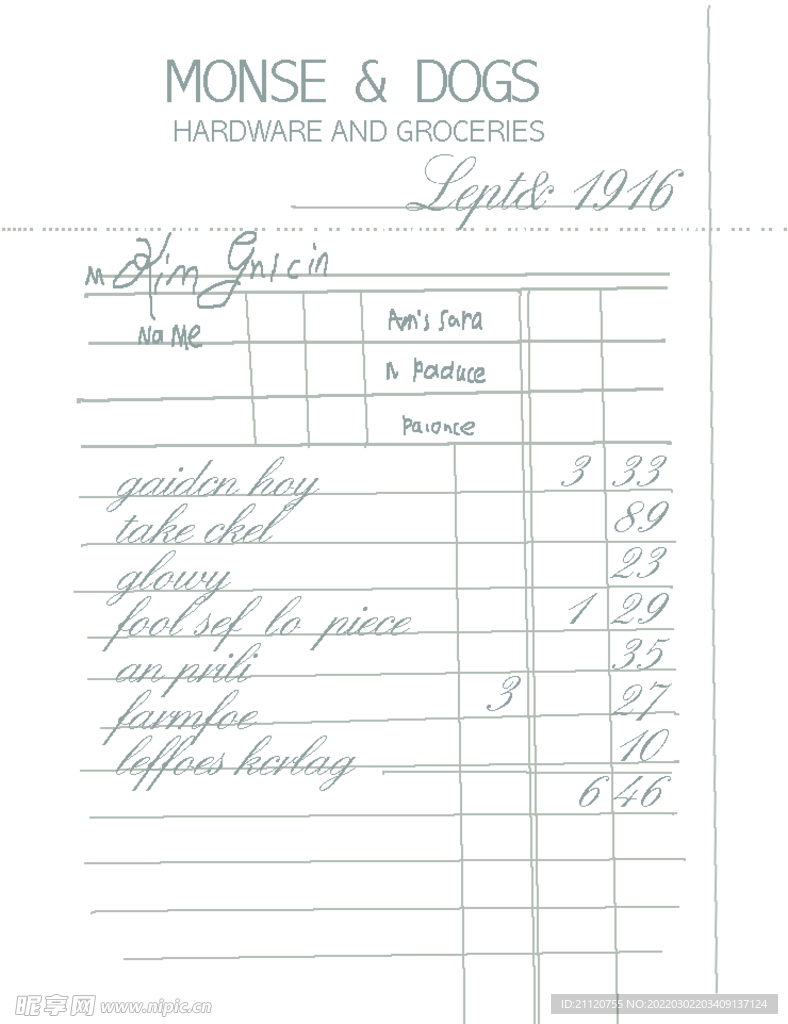 MONSE & DOGS
HARDWARE AND GROCERIES
Lept& 1916
M Kim
NaMe
Am's sara
N paduce
paionce
gaidcn hoy 3 33
take ckel 89
glowy 23
fool sef lo piece 1 29
an prili 35
farmfoe 3 27
leffoes kcrlag 10
6 46
昵享网 www.nipic.cn
ID:21120755 NO:20220302203409137124